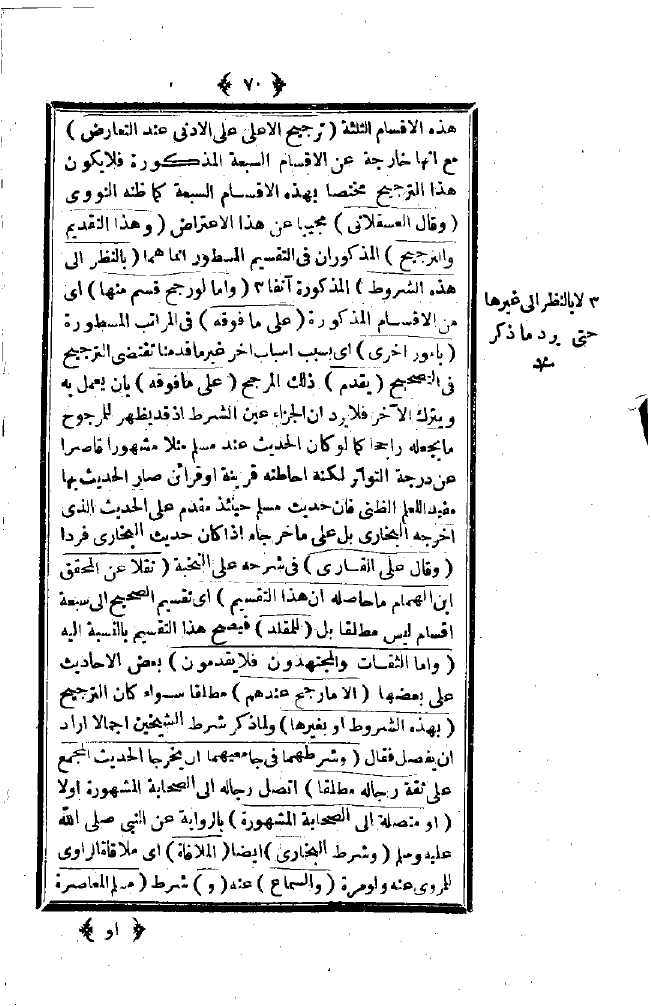 ﴿ ٧٠ ﴾
هذه الاقسام الثلثة ( ترجيح الاعلى على الادنى عند التعارض )
مع انها خارجة عن الاقسام السبعة المذكورة فلا يكون
هذا الترجيح مختصا بهذه الاقسام السبعة كما ظنه النووى
( وقال العسقلانى ) مجيبا عن هذا الاعتراض ( وهذا التقديم
والترجيح ) المذكوران فى التقسيم المسطور انما هما ( بالنظر الى
هذه الشروط ) المذكورة آنفا ٣ ( واما لو رجح قسم منها ) اى
من الاقسام المذكورة ( على ما فوقه ) فى المراتب المسطورة
( بامور اخرى ) اى بسبب اسباب اخر غير ما قدمنا تقتضى الترجيح
فى التصحيح ( يقدم ) ذلك المرجح ( على مافوقه ) بان يعمل به
ويترك الآخر فلا يرد ان الجزاء عين الشرط اذ قد يظهر للمرجوح
ما يجعله راجحا كما لو كان الحديث عند مسلم مثلا مشهورا قاصرا
عن درجة التواتر لكنه احاطته قرينة او قرائن صار الحديث بها
مفيدا للعلم الظنى فان حديث مسلم حينئذ مقدم على الحديث الذى
اخرجه البخارى بل على ما خرجاه اذا كان حديث البخارى فردا
( وقال على القارى ) فى شرحه على النخبة ( نقلا عن المحقق
ابن الهمام ما حاصله ان هذا التقسيم ) اى تقسيم الصحيح الى سبعة
اقسام ليس مطلقا بل ( للمقلد ) فيصح هذا التقسيم بالنسبة اليه
( واما الثقات والمجتهدون فلا يقدمون ) بعض الاحاديث
على بعضها ( الا ما رجح عندهم ) مطلقا سواء كان الترجيح
( بهذه الشروط او بغيرها ) ولما ذكر شرط الشيخين اجمالا اراد
ان يفصل فقال ( وشرطهما فى جامعيهما ان يخرجا الحديث المجمع
على ثقة رجاله مطلقا ) اتصل رجاله الى الصحابة المشهورة اولا
( او متصلة الى الصحابة المشهورة ) بالرواية عن النبى صلى الله
عليه وسلم ( وشرط البخارى ) ايضا ( الملاقاة ) اى ملاقاة الراوى
للمروى عنه ولو مرة ( والسماع ) عنه ( و ) شرط ( مسلم المعاصرة
﴿ او ﴾
٣ لا بالنظر الى غيرها
حتى يرد ما ذكر